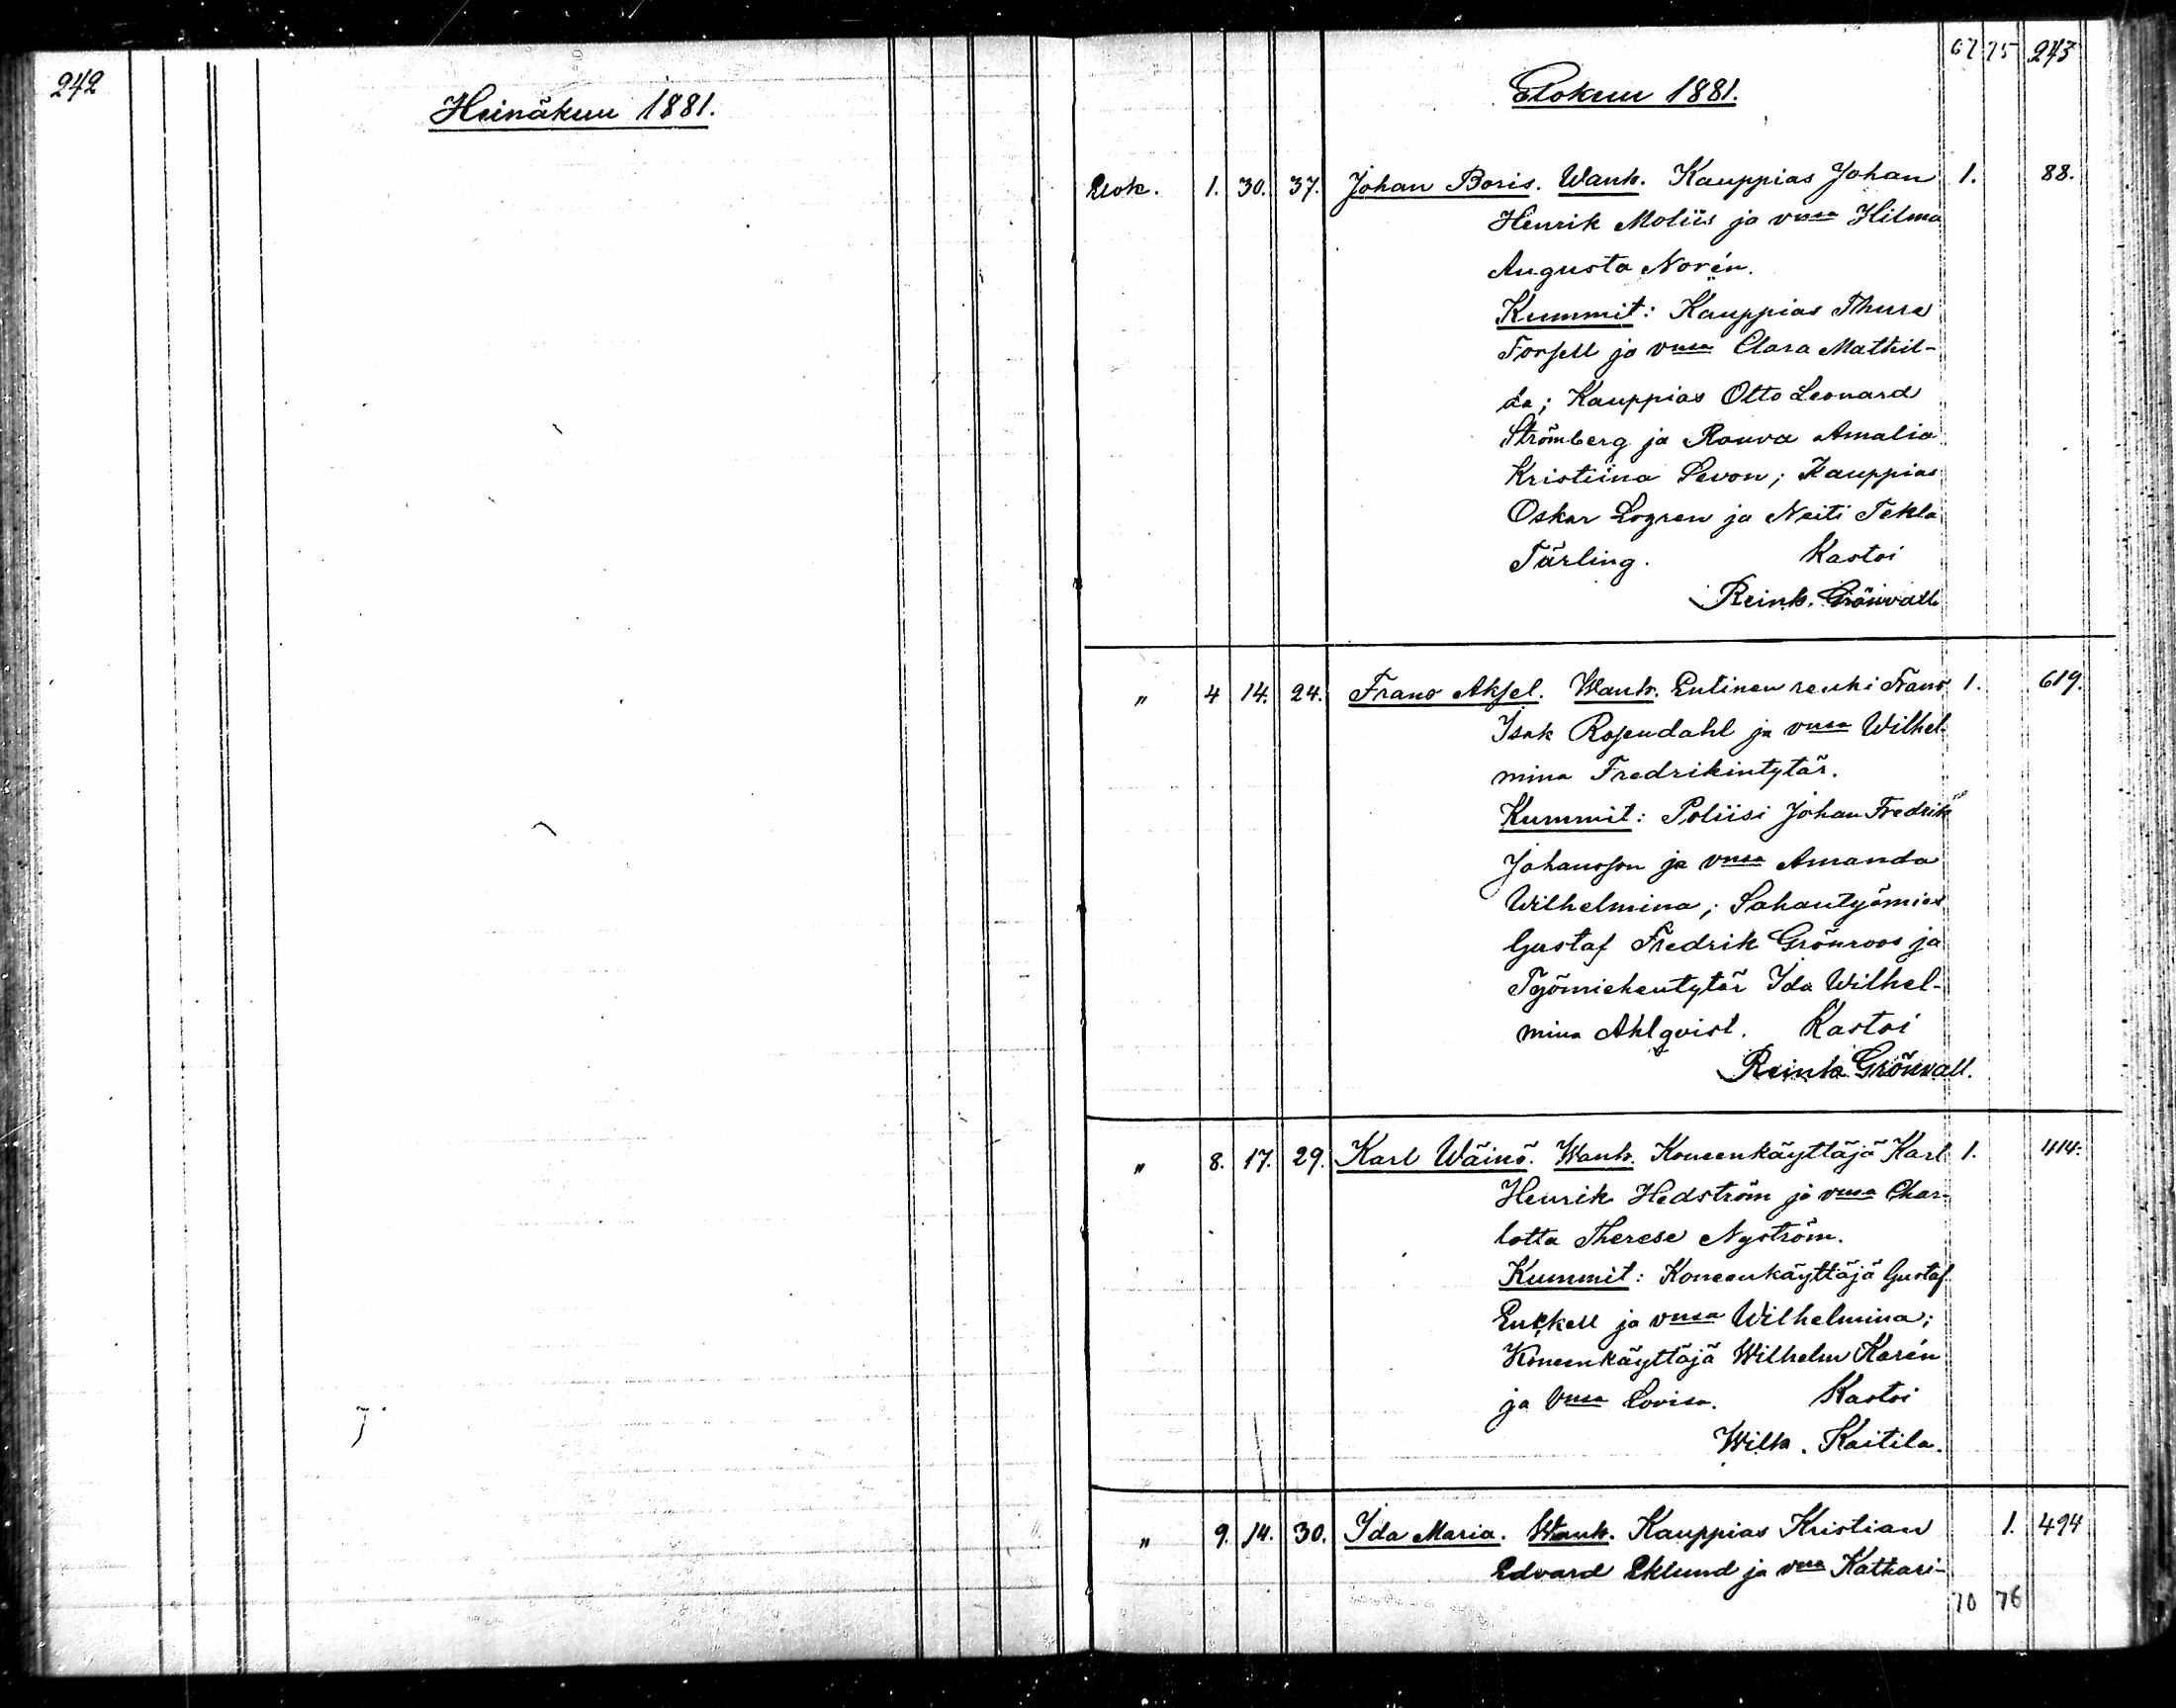 242
Heinäkuu 1881.
67 75 243
Elokuu 1881.
Elok. 1. 30. 37. Johan Boris. Wanh. Kauppias Johan 1. 88.
Henrik Moliis ja vmsa Hilma
Augusta Norén.
Kummit: Kauppias Thure
Forsell ja vmsa Clara Mathil-
da; Kauppias Otto Leonard
Strömberg ja Rouva Amalia
Kristiina Levon; Kauppias
Oskar Logren ja Neiti Tekla
Tärling. Kastoi
Reinh. Grönvall
" 4 14. 24. Frans Aksel. Wanh. Entinen renki Frans 1. 619.
Isak Rosendahl ja vmsa Wilhel-
mina Fredrikintytär.
Kummit: Poliisi Johan Fredrik
Johansson ja vmsa Amanda
Wilhelmina; Sahantyömies
Gustaf Fredrik Grönroos ja
Työmiehentytär Ida Wilhel-
mina Ahlqvist. Kastoi
Reinh. Grönvall.
" 8. 17. 29. Karl Wäinö. Wanh. Koneenkäyttäjä Karl 1. 414.
Henrik Hedström ja vmsa Char-
lotta Therese Nyström.
Kummit: Koneenkäyttäjä Gustaf
Enckell ja vmsa Wilhelmina;
Koneenkäyttäjä Wilhelm Karén
ja Vmsa Lovisa. Kastoi
Wilh. Kaitila.
" 9. 14. 30. Ida Maria. Wanh. Kauppias Kristian 1. 494
Edvard Eklund ja vmsa Kathari-
70 76